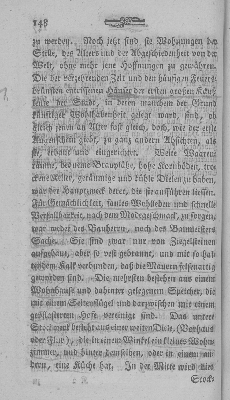 148
zu werden. Noch jetzt sind sie Wohnungen der
Stille, des Alters und der Abgeschiedenheit von der
Welt, ohne mehr jene Hoffnungen zu gewähren.
Die der verzehrenden Zeit und den häufigen Feuers-
brünsten entrissenen Häuser der ersten großen Kauf-
leute der Stadt, in deren manchem der Grund
künftiger Wohlhabenheit gelegt ward, sind, ob
gleich jenen an Alter fast gleich, doch, wie der erste
Augenschein giebt, zu ganz andern Absichten, als
sie, erbaut und eingerichtet. Weite Waaren
räume, des neue Bauplätze, hohe Kornböden, tro-
ckene Keller, geräumige und kühle Dielen zu haben,
war der Hauptzweck derer, die sie aufführen liessen.
Für Gemächlichkeit, faules Wohlleben und schnelle
Verfallbarkeit, nach dem Modegeschmack, zu sorgen,
war weder des Bauherrn, noch des Baumeisters
Sache. Sie sind zwar nur von Ziegelsteinen
aufgebaut, aber so vest gebrannt, und mit so halt-
baren Kalk verbunden, daß die Mauern felsenartig
geworden sind. Die mehrsten bestehen aus einem
Wohnhause und dahinter gelegenen Speicher, die
mit einem Seitenflügel und darzwischen mit einem
gepflasterten Hofe vereinigt sind. Das untere
Stockwerk besteht aus einer weiten Diele, (Vorhaus
oder Flur), die in einem Winkel ein kleines Wohn-
zimmer, und hinter demselben, oder in einem an-
dern, eine Küche hat. In der Mitte wird dies
Stock-